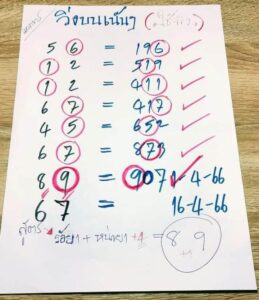 วิ่งบนเน้นๆ
5 6 = 196 ✓
1 2 = 519 ✓
1 2 = 411 ✓
6 7 = 417 ✓
4 5 = 652 ✓
6 7 = 873 ✓
8 9 = 907 1-4-66
6 7 = 16-4-66
สูตร: ร้อย + หน่วย + 4 = 8 9
+1